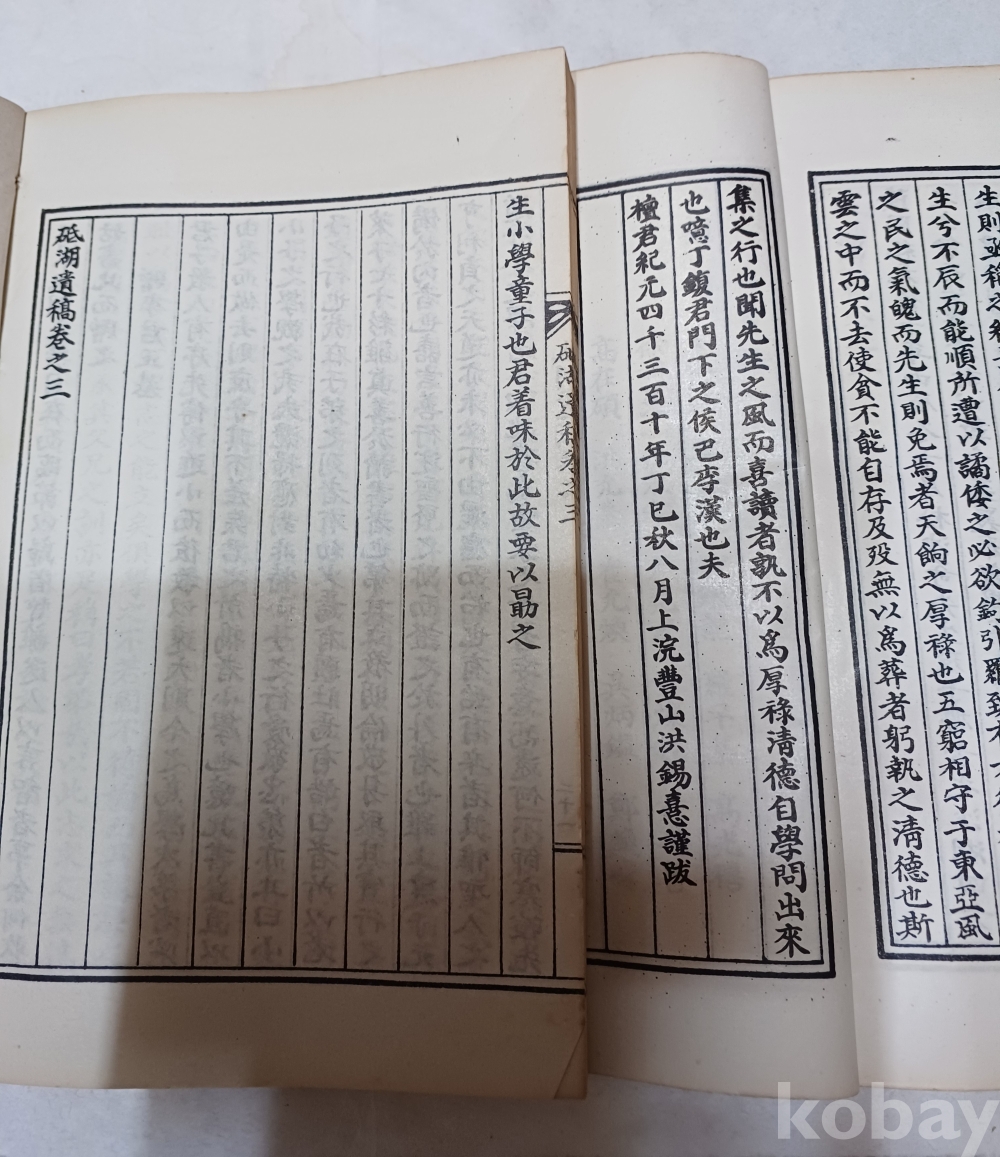 生則亟稱之
生兮不辰而能順所遭以譎倭之必欲鉤引羅致
之民之氣魄而先生則免焉者天餉之厚祿也五窮相守于東亞風
雲之中而不去使貧不能自存及歿無以爲葬者躬執之淸德也斯
集之行也聞先生之風而喜讀者孰不以爲厚祿淸德自學問出來
也噫丁鍑君門下之侯芭李漢也夫
檀君紀元四千三百十年丁巳秋八月上浣豐山洪錫憙謹跋
砥湖遺稿卷之三
生小學童子也君着味於此故要以勗之
砥湖遺稿卷之三
kobay